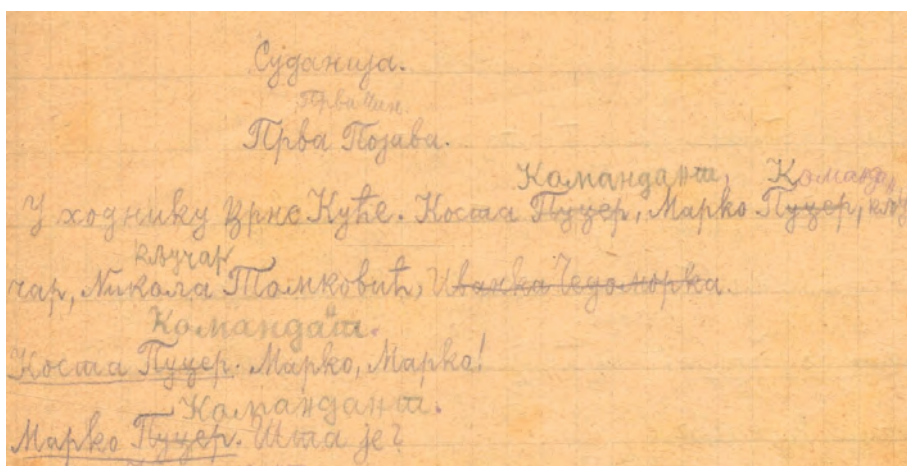 Суданија.
Први чин.
Прва Појава.
Командант, Командан
У ходнику Врне Куће. Коста Пуцер, Марко Пуцер, кљу
кључар
чар, Никола Томковић, Иванка Чедоморка.
Командант.
Коста Пуцер. Марко, Марко!
Командант.
Марко Пуцер. Шта је?